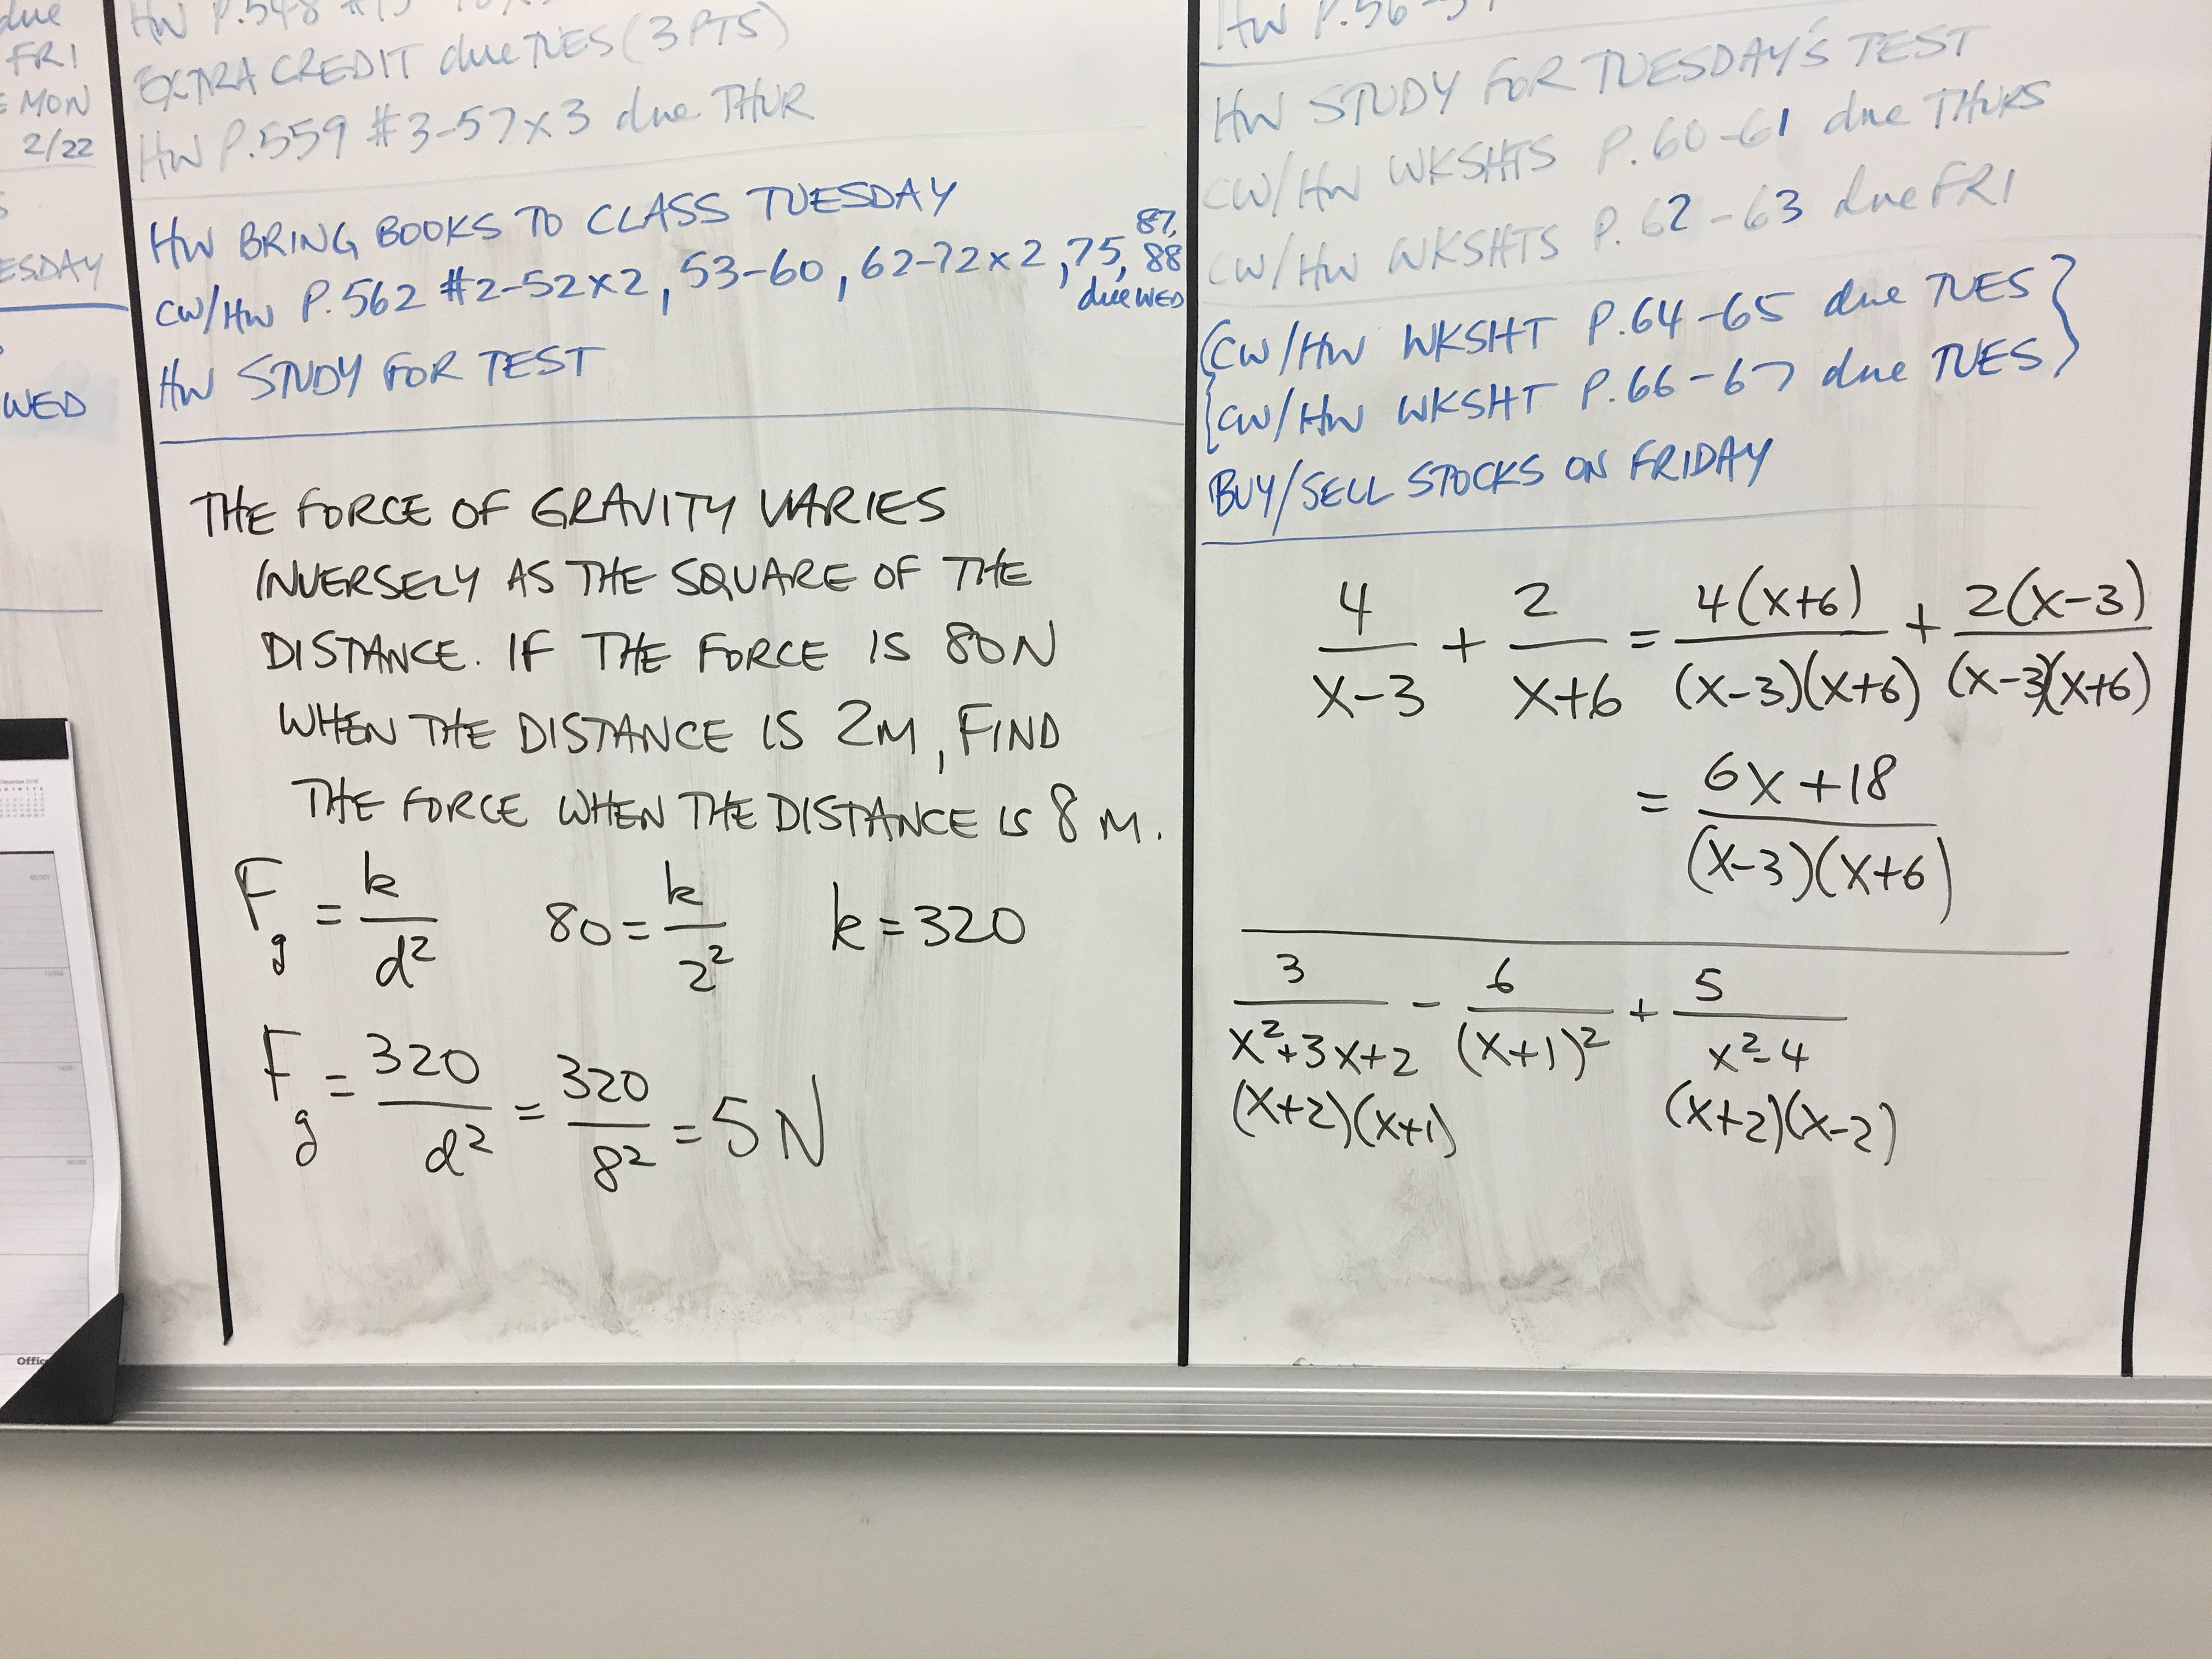 due
FRI
MON
2/22
ESDAY
WED
December 2016
Offic
HW P.548 #
EXTRA CREDIT due TUES (3 PTS)
HW P.559 #3-57x3 due THUR
HW BRING BOOKS TO CLASS TUESDAY
CW/HW P.562 #2-52x2, 53-60, 62-72x2, 75, 87, 88
due WED
HW STUDY FOR TEST
THE FORCE OF GRAVITY VARIES
INVERSELY AS THE SQUARE OF THE
DISTANCE. IF THE FORCE IS 80N
WHEN THE DISTANCE IS 2M, FIND
THE FORCE WHEN THE DISTANCE IS 8 M.
F_g = k/d² 80 = k/2² k = 320
F_g = 320/d² = 320/8² = 5 N
HW P.56-5
HW STUDY FOR TUESDAY'S TEST
CW/HW WKSHTS P.60-61 due THURS
CW/HW WKSHTS P.62-63 due FRI
CW/HW WKSHT P.64-65 due TUES
CW/HW WKSHT P.66-67 due TUES
BUY/SELL STOCKS ON FRIDAY
4/(x-3) + 2/(x+6) = 4(x+6)/(x-3)(x+6) + 2(x-3)/(x-3)(x+6)
= 6x+18/(x-3)(x+6)
3/(x²+3x+2) - 6/(x+1)² + 5/(x²-4)
(x+2)(x+1) (x+2)(x-2)